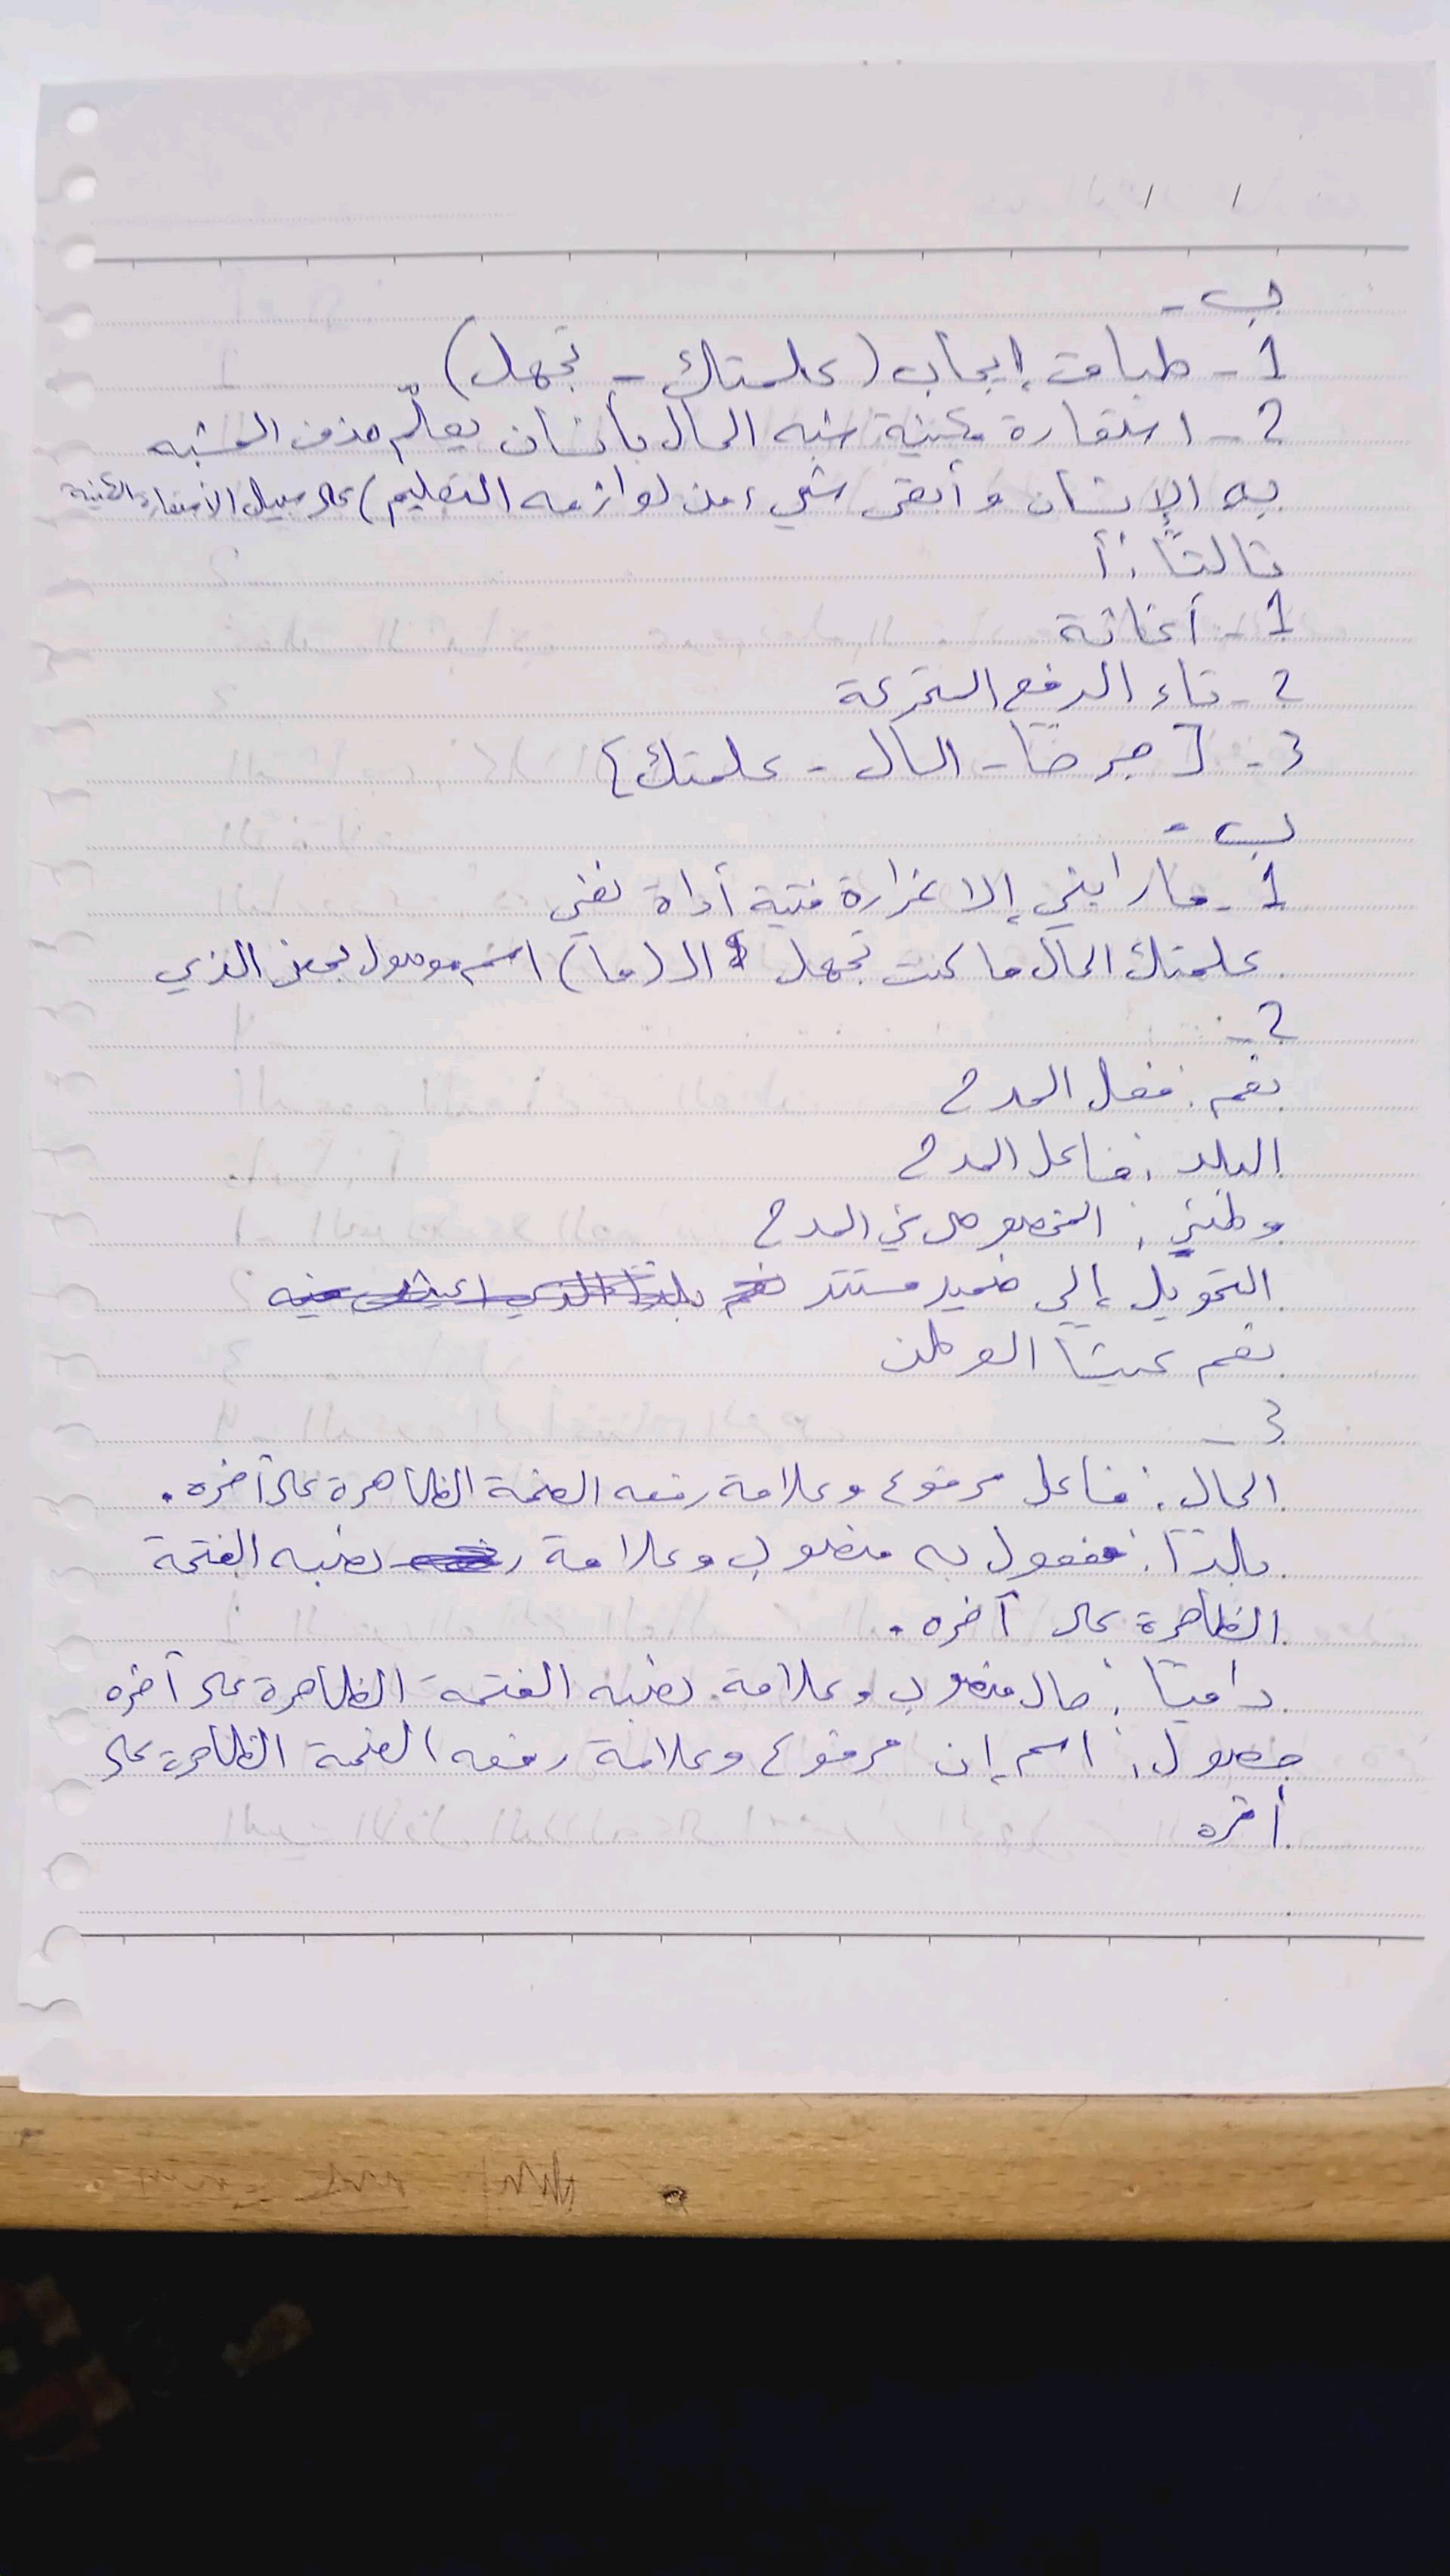 ب -
1 - طباق إيجاب (علمتك - تجهل)
2 - استعارة مكنية شبه الحال بأنسان يعلّم حذف المشبه
به الإنسان وأبقى شيء من لوازمه التعليم) على سبيل الأستعارة المكنية
ثالثًا: أ
1 - أغاثة
2 - تاء الرفع المتحركة
3 - [جرحًا - الحال - علمتك}
ب -
1 - ما رابني إلا غرارة فتية أداة نفي
علمتك الحال ما كنت تجهل ال (ما) اسم موصول بمعنى الذي
2 -
نعم: فعل المدح
البلد: فاعل المدح
وطني: المخصوص في المدح
التحويل إلى ضمير مستتر
نعم عيشًا الوطن
3 -
الحال: فاعل مرفوع وعلامة رفعه الضمة الظاهرة على آخره.
بلدًا: مفعول به منصوب وعلامة نصبه الفتحة
الظاهرة على آخره.
داميًا: حال منصوب وعلامة نصبه الفتحة الظاهرة على آخره
حصول: اسم إن مرفوع وعلامة رفعه الضمة الظاهرة على
أخره